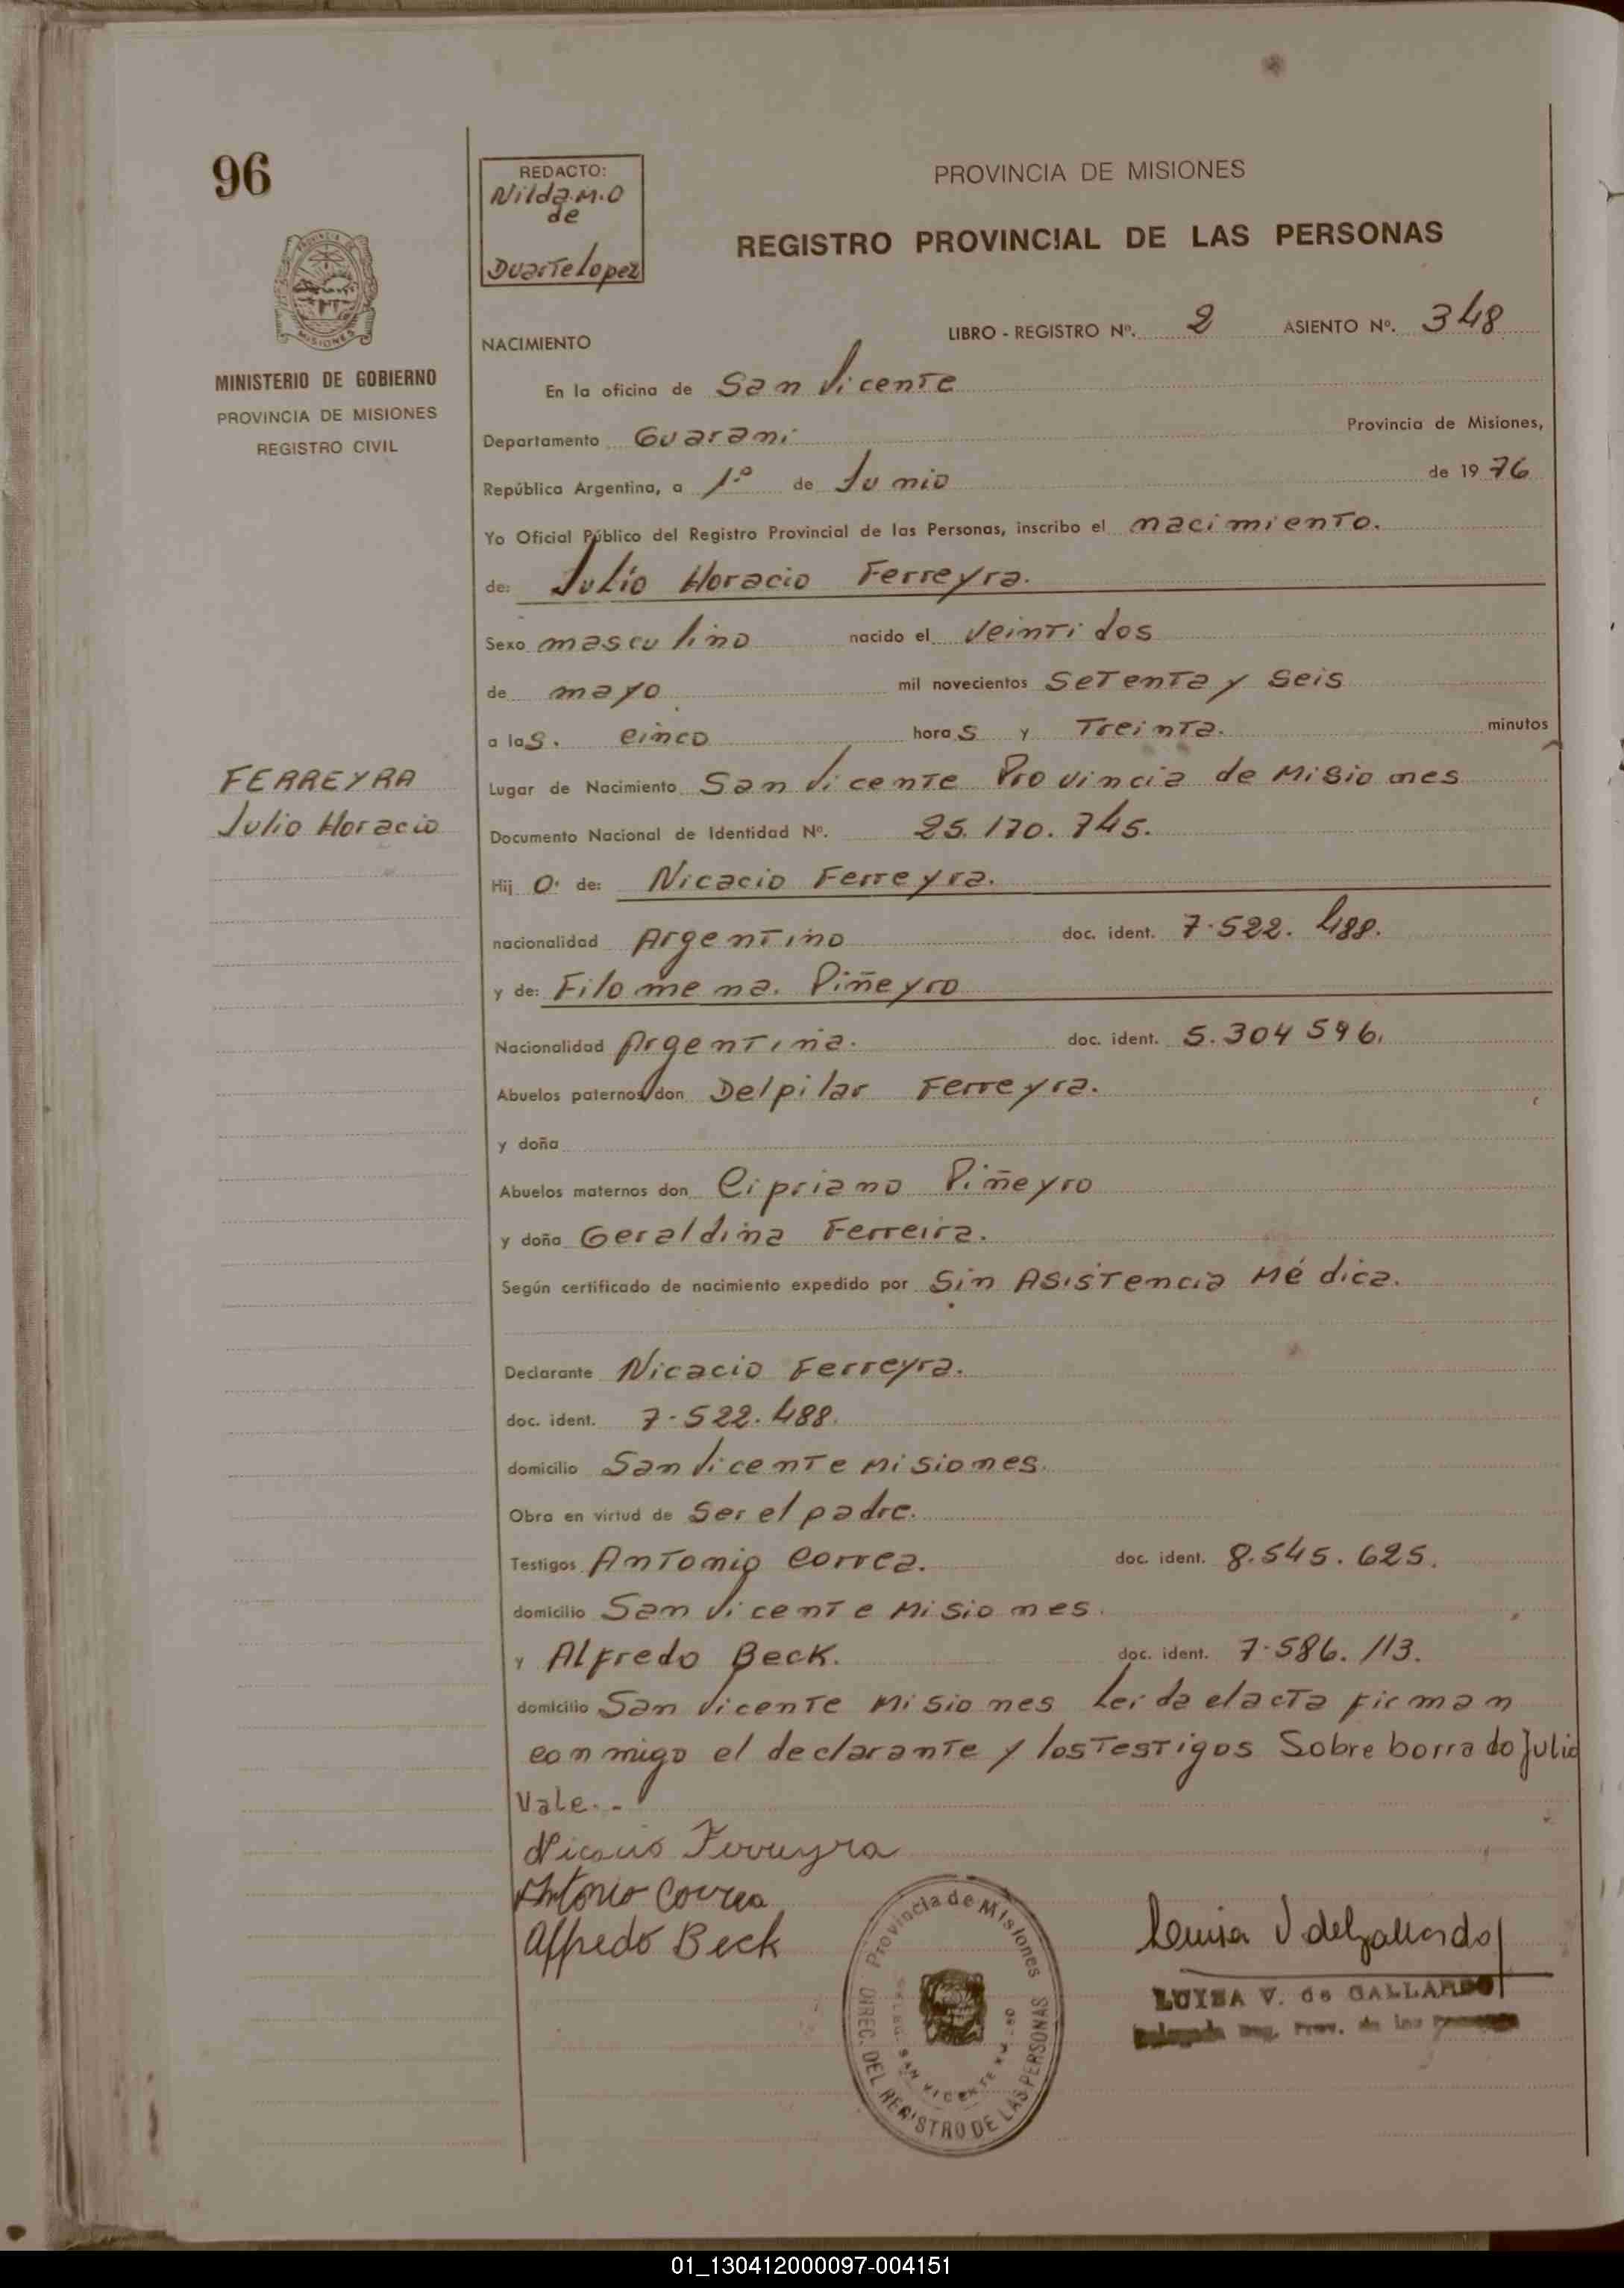 96
REDACTO:
Nilda.M.O
de
Duarte Lopez
PROVINCIA DE MISIONES
REGISTRO PROVINCIAL DE LAS PERSONAS
PROVINCIA DE MISIONES
MINISTERIO DE GOBIERNO
PROVINCIA DE MISIONES
REGISTRO CIVIL
LIBRO - REGISTRO Nº. 2 ASIENTO Nº. 348
NACIMIENTO
En la oficina de San Vicente
Departamento Guarani Provincia de Misiones,
República Argentina, a 1º de Junio de 1976
Yo Oficial Público del Registro Provincial de las Personas, inscribo el nacimiento.
de: Julio Horacio Ferreyra.
Sexo masculino nacido el veintidos
de mayo mil novecientos Setenta y Seis
a las. cinco horas y Treinta. minutos
FERREYRA
Julio Horacio
Lugar de Nacimiento San Vicente Provincia de Misiones
Documento Nacional de Identidad Nº. 25.170.745.
Hijo. de: Nicacio Ferreyra.
nacionalidad Argentino doc. ident. 7.522.488.
y de: Filomena. Piñeyro
Nacionalidad Argentina. doc. ident. 5.304 596.
Abuelos paternos/don Delpilar Ferreyra.
y doña
Abuelos maternos don Cipriano Piñeyro
y doña Geraldina Ferreira.
Según certificado de nacimiento expedido por Sin Asistencia Médica.
Declarante Nicacio Ferreyra.
doc. ident. 7.522.488.
domicilio San Vicente Misiones.
Obra en virtud de Ser el padre.
Testigos Antonio Correa. doc. ident. 8.545.625.
domicilio San Vicente Misiones.
y Alfredo Beck. doc. ident. 7.586.113.
domicilio San Vicente Misiones Leida el acta firman
conmigo el declarante y los Testigos Sobre borrado Julio
Vale.-
Nicacio Ferreyra
Antonio Correa
Alfredo Beck
Provincia de Misiones
DIREC. DEL REGISTRO DE LAS PERSONAS
SAN VICENTE
Luisa V de Gallardo
LUISA V. de GALLARDO
Delegada Reg. Prov. de las Personas
01_130412000097-004151